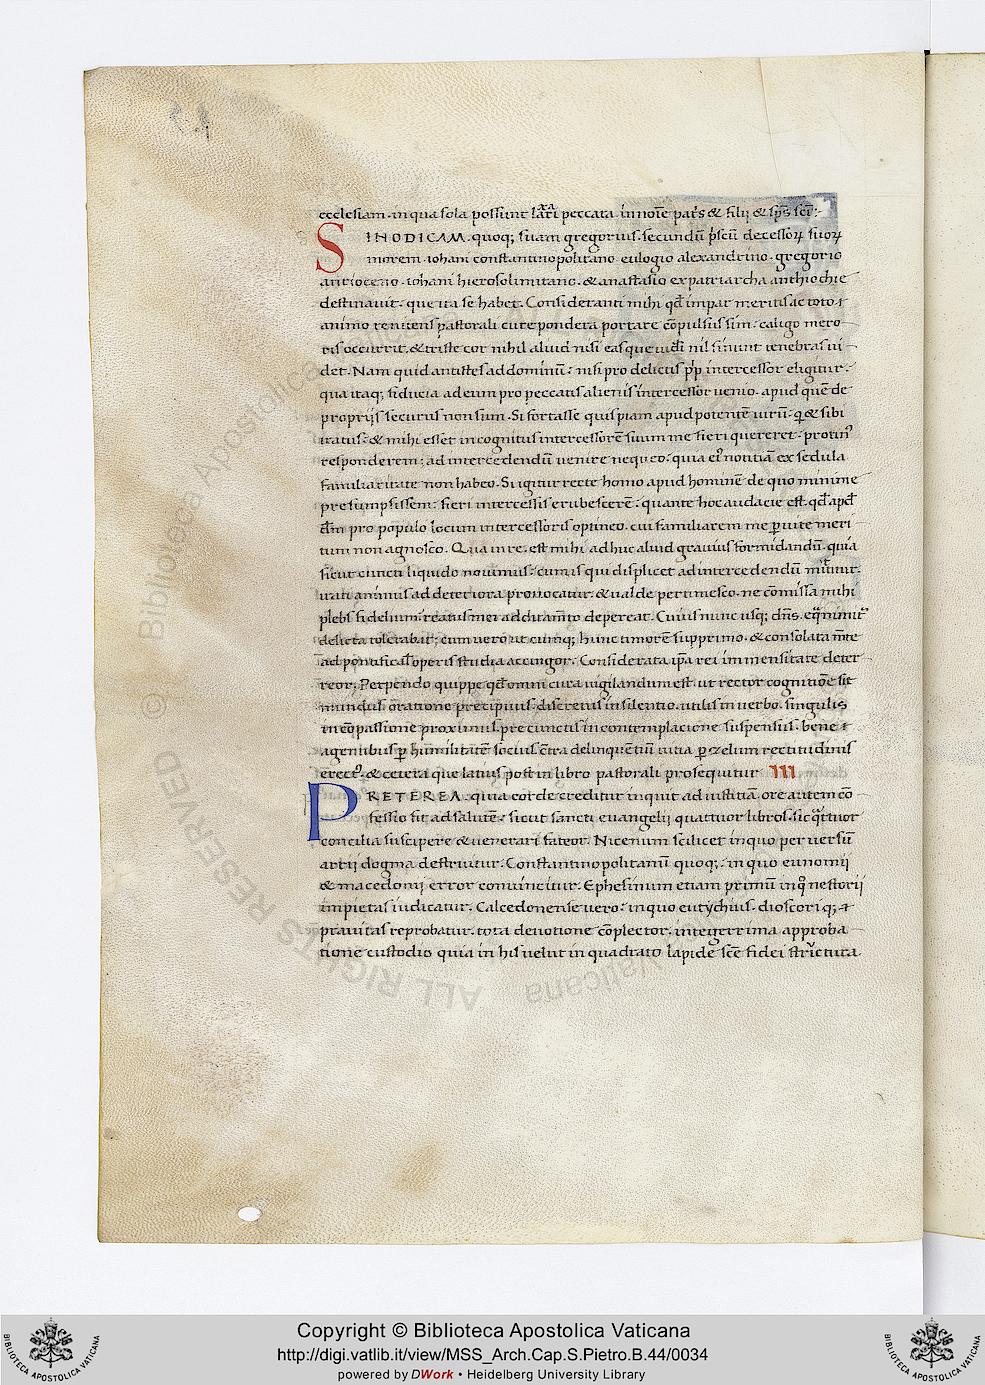 ecclesiam. in qua sola possunt laxari peccata. in noīe pat̄s & filij & sp̄s sc̄i:-
SINODICAM. quoq; suam gregorius. secundū p̄scū decessoꝝ suoꝝ
morem. iohani constantinopolitano. eulogio alexandrino. gregorio
antioceno. iohani hierosolimitano. & anastasio expatriarcha anthiochie
destinavit. que ita se habet. Consideranti mihi qd̄ impar meritis ac toto
animo renitens pastorali cure pondera portare cōpulsus sim: caligo mero
ris occurrit. & triste cor nihil aliud nisi eas que videri nil sinunt tenebras vi
det. Nam quid antistes ad dominū: nisi pro delictis pp̄li intercessor eligitur.
qua itaq; fiducia ad eum pro peccatis alienis intercessor venio. apud quē de
proprijs securus non sum. Si fortasse quispiam apud potentē virū: q & sibi
iratus: & mihi esset incognitus intercessorē suum me fieri quereret: protin⁹
responderem; ad intercedendū venire nequeo: quia ei⁹ notitiā ex sedula
familiaritate non habeo. Si igitur recte homo apud hominē de quo minime
presumpsissem: fieri intercessis erubescerē: quante hoc audacie est. qd̄ apd̄
dm̄ pro populo locum intercessoris optineo. cui familiarem me p̱ vite meri
tum non agnosco. Qua in re. est mihi adhuc aliud gravius formidandū. quia
sicut cuncti liquido novimus: cum is qui displicet ad intercedendū mittitur.
irati animus ad deteriora provocatur. & valde pertimesco. ne cōmissa mihi
plebs fidelium. reatus mei additam̄to depereat. Cuius nunc usq; dn̄s. eq̄nimit̄
delicta tolerabat; cum vero ut cumq; hunc timorē supprimo. & consolata m̄te
ad pontificał operis studia accingor: Considerata ip̄a rei immensitate deter
reor; Perpendo quippe qd̄ omni cura vigilandum est. ut rector cognitiōe sit
mundus. oratione precipuus. discretus in silentio. utilis in verbo. singulis
in cōpassione proximus. pre cunctis in contemplacione suspensus. bene
agentibus p̱ humilitatē socius. cōtra delinquentiū vitia p̱ zelum rectitudinis
erect⁹. & cetera que latius post in libro pastorali prosequitur III
PRETEREA. quia corde creditur inquit ad iustitiā. ore autem cō
fessio fit ad salutē: sicut sancti evangelij quattuor libros. sic qͥttuor
concilia suscipere & venerari fateor. Nicenum scilicet in quo perversū
artij dogma destruitur. Constantinopolitanū quoq;. in quo eunomij
& macedonij error convincitur. Ephesinum etiam primū in qͦ nestorij
impietas iudicatur. Calcedonense vero: in quo eutychius. dioscoriq;
pravitas reprobatur. tota devotione cōplector. integerrima approba
tione custodio quia in his velut in quadrato lapide sc̄e fidei structura
ALL RIGHTS RESERVED © Biblioteca Apostolica Vaticana
Copyright © Biblioteca Apostolica Vaticana
http://digi.vatlib.it/view/MSS_Arch.Cap.S.Pietro.B.44/0034
powered by DWork • Heidelberg University Library
BIBLIOTECA APOSTOLICA VATICANA
BIBLIOTECA APOSTOLICA VATICANA